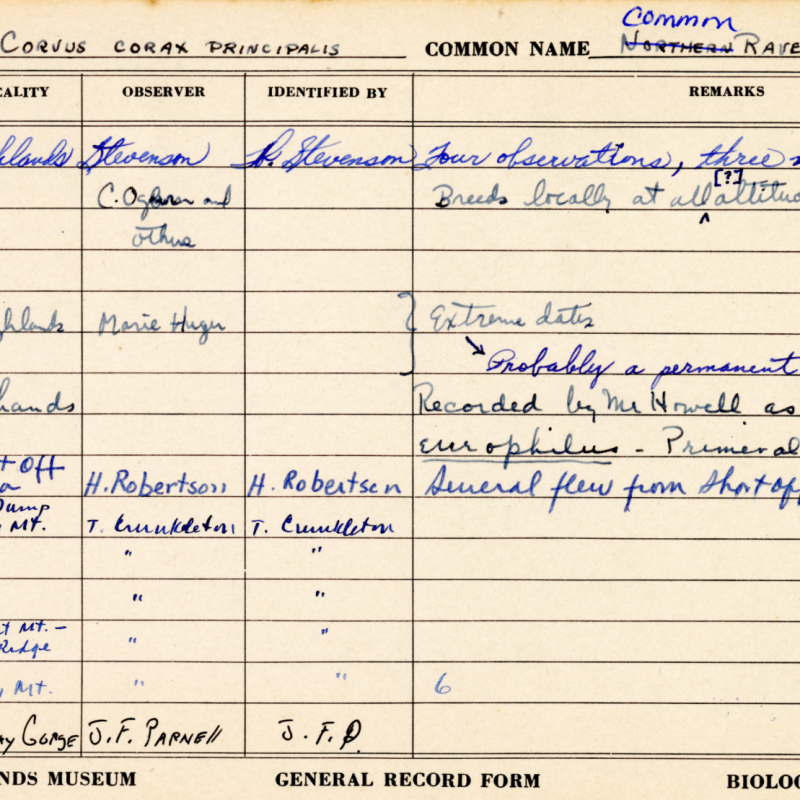 CORVUS CORAX PRINCIPALIS COMMON NAME Common NORTHERN RAVE
ALITY OBSERVER IDENTIFIED BY REMARKS
hlands Stevenson H. Stevenson Four observations, three
C. Ogburn and Breeds locally at all [?] altitu
others
ghlands Marie Huger Extreme dates
Probably a permanent
hands Recorded by Mr Howell as
europhilus - Primeval
t Off
H. Robertson H. Robertson Several flew from Shortoff
Dump
Mt. T. Crunkleton T. Crunkleton
" "
" "
t Mt. –
Ridge " "
Mt. " " 6
ay Gorge J. F. PARNEll J. F. P.
NDS MUSEUM GENERAL RECORD FORM BIOLOG